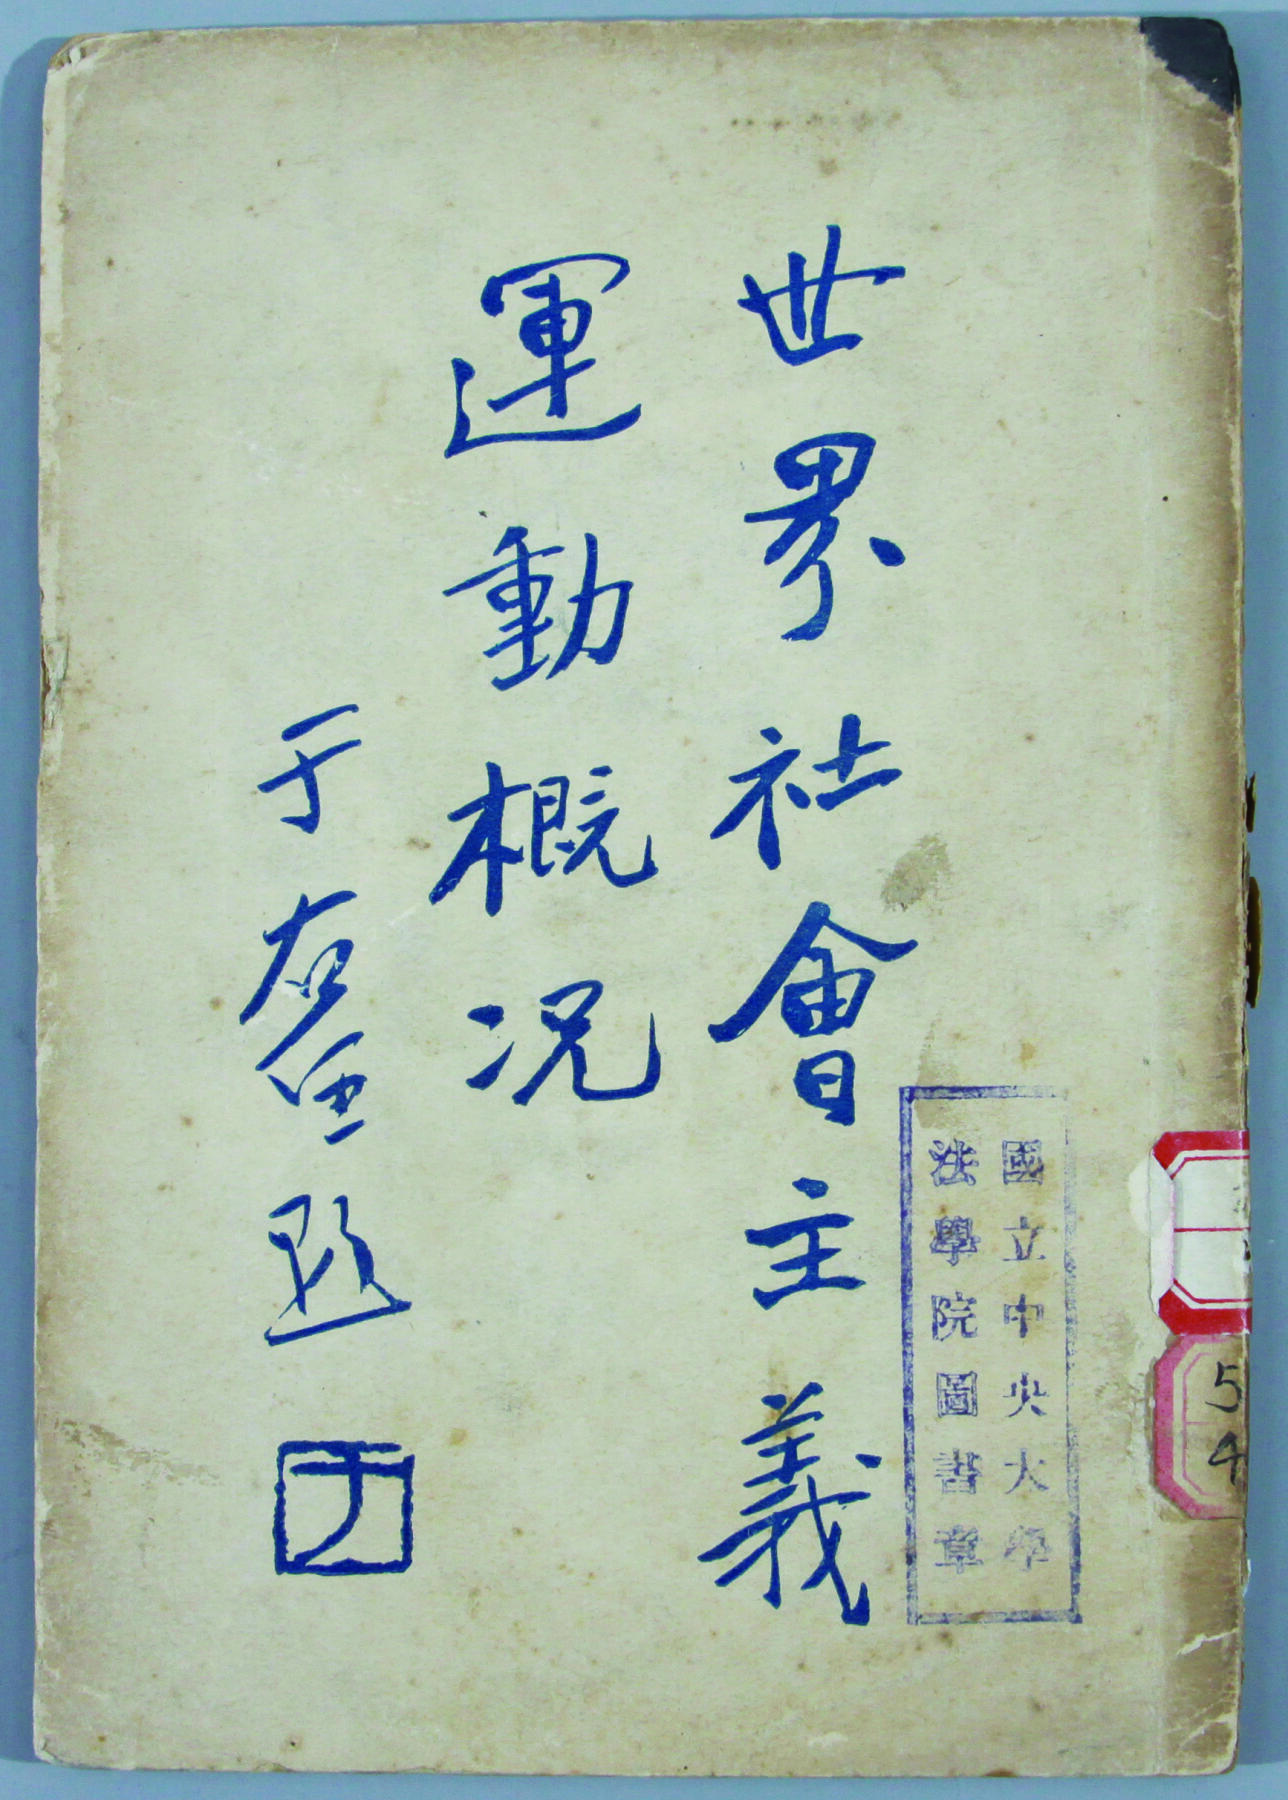 世界社會主義
運動概況
于右任題
于
國立中央大學
法學院圖書章
5
4